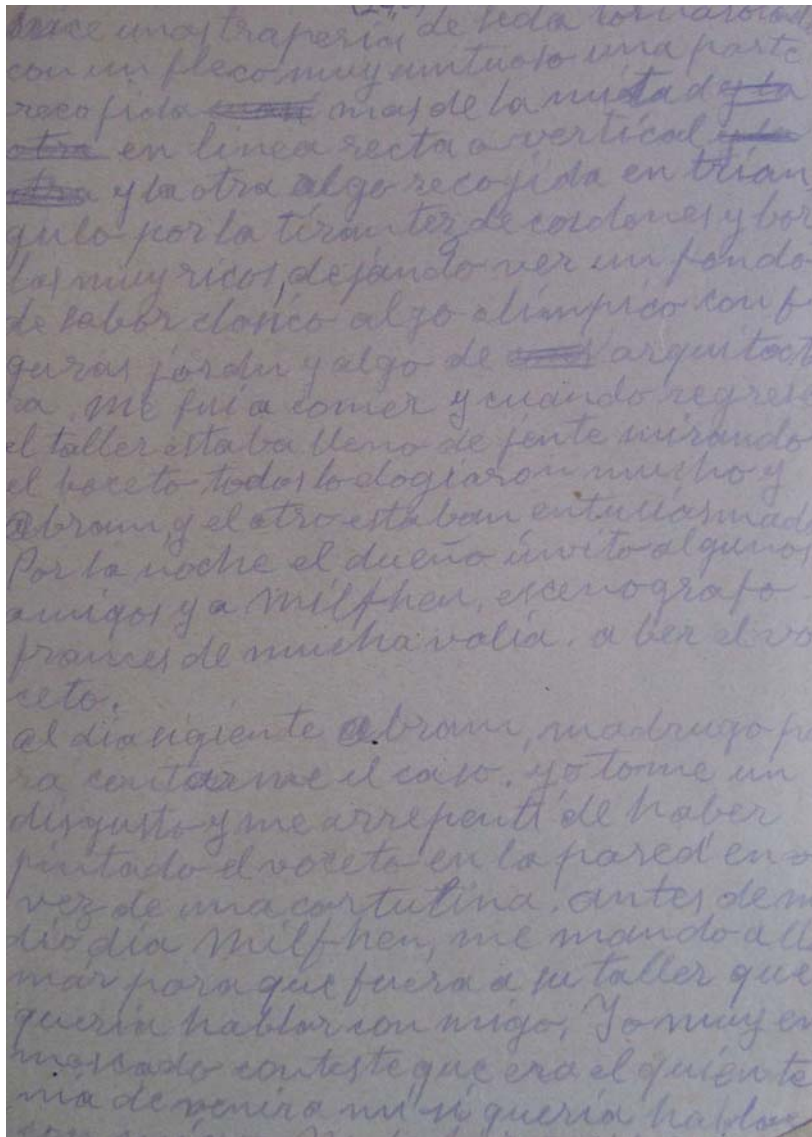 hice unas traperias de seda tornasolada
con un fleco muy untuoso una parte
recojida mas de la mitad
en linea recta o vertical
y la otra algo recojida en trian
gulo por la tirantez de cordones y bor
las muy ricos, dejando ver un fondo
de sabor clasico algo olimpico con fi
guras jardin y algo de arquitect
ra. me fui a comer y cuando regrese
el taller estaba lleno de jente mirando
el boceto todos lo elogiaron mucho y
Abram, y el otro estaban entuciasmad
Por la noche el dueño invito algunos
amigos y a Milfhen, escenografo
frances de mucha valia. a ber el vo
ceto.
al dia sigiente Abram, madrugo pa
ra contarme el caso. yo tome un
disgusto y me arrepenti de haber
pintado el voceto en la pared en
vez de una cartulina. antes de m
dio dia Milfhen, me mando a ll
mar para que fuera a su taller que
queria hablar con migo, Yo muy en
conteste que era el quien te
nia de venir a mi si queria hablar